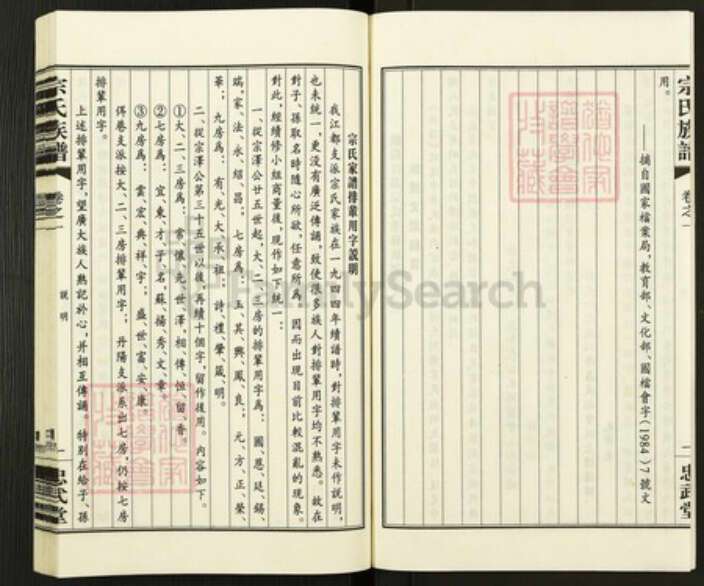 宗氏族譜
卷之一
一
忠武堂
用。
——摘自國家檔案局，教育部、文化部、國檔會字(1984)7號文
宗氏家譜傳輩用字説明
我江都支派宗氏家族在一九四四年續譜時，對排輩用字未作説明，
也未統一，更没有廣泛傳誦，致使很多族人對排輩用字均不熟悉。故在
對子、孫取名時隨心所欲，任意所為。因而出現目前比較混亂的現象。
對此，經續修小組商量後，現作如下統一：
一、從宗澤公廿五世起，大、二、三房的排輩用字為：國、恩、廷、錫、
瑞、家、法、永、紹、昌；七房為：玉、其、興、鳳、良；元、方、正、榮、
華；九房為：有、光、大、承、祖；詩、禮、肇、箴、明。
二、從宗澤公第三十五世以後，再續十個字，留作後用。内容如下。
①大、二、三房為：常、懷、先、世、澤，相、傳、恒、留、香。
②七房為：宜、東、才、子、名，蘇、揚、秀、文、章。
③九房為：雲、宏、典、祥、宇；盛、世、富、安、康。
俜巷支派按大、二、三房排輩用字；丹陽支派系出七房，仍按七房
排輩用字。
上述排輩用字，望廣大族人熟記於心，并相互傳誦。特别在給子、孫
宗氏族譜
卷之一
説明
一
忠武堂
FamilySearch